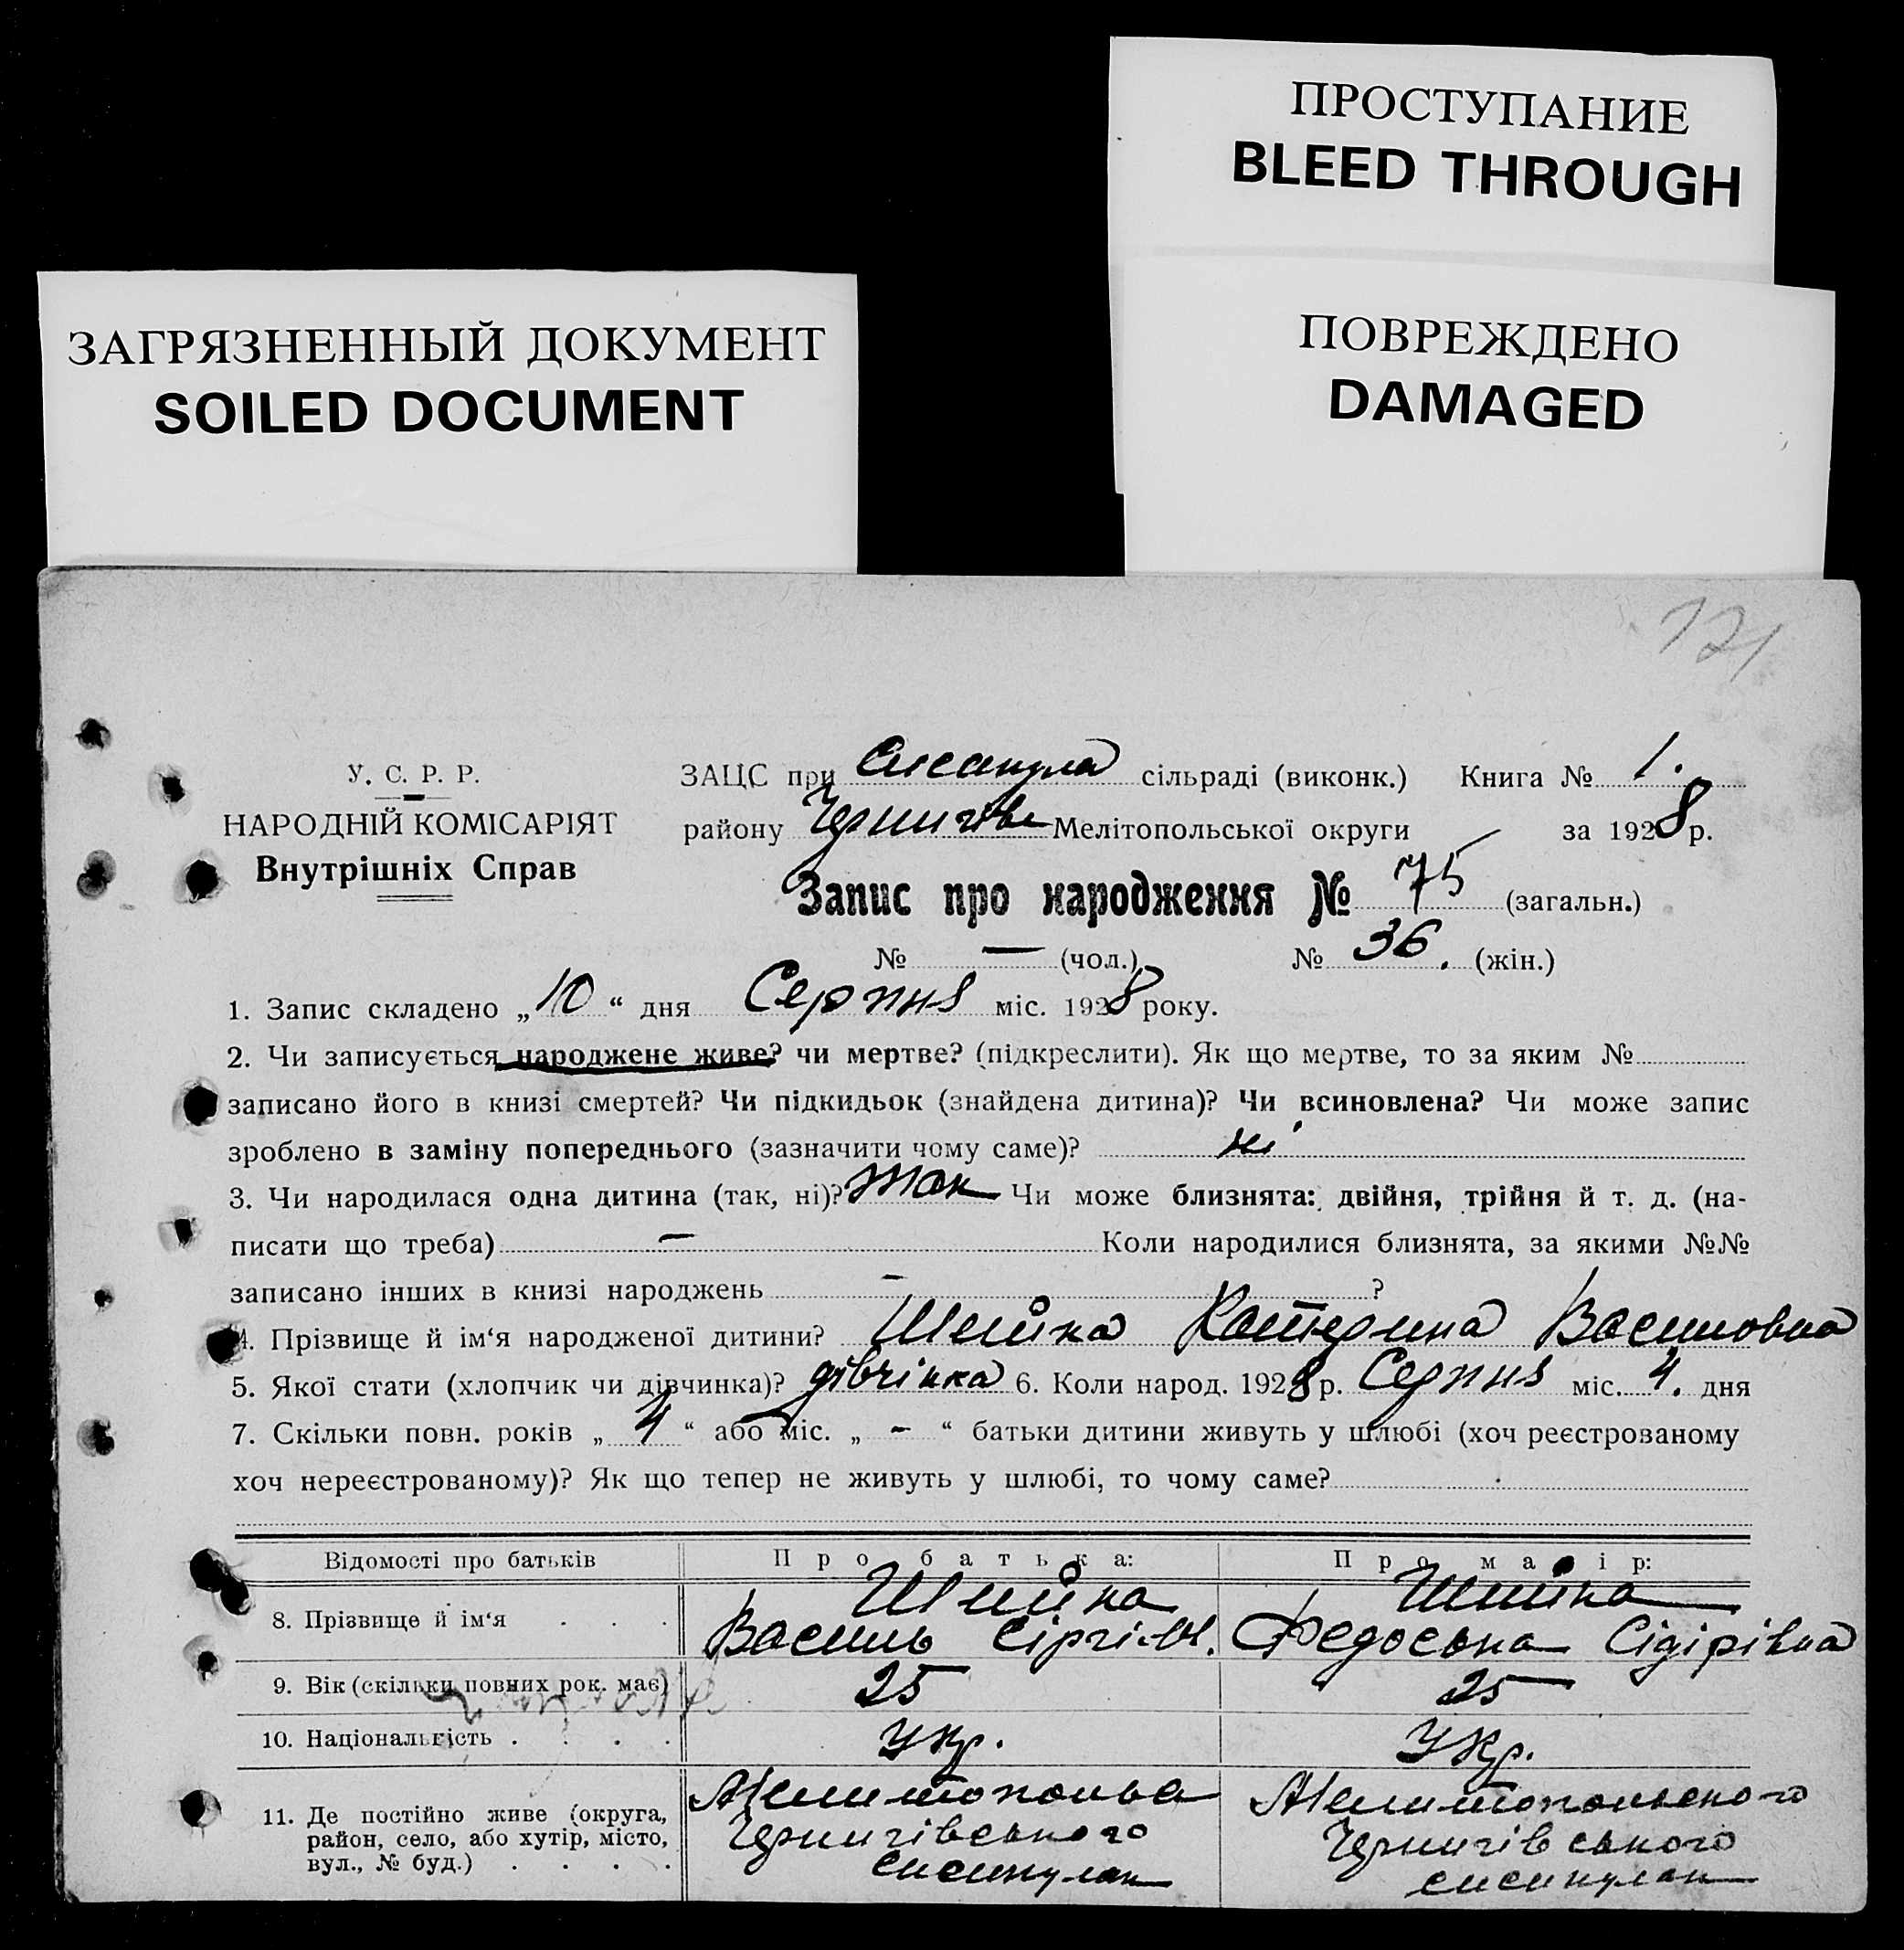 ПРОСТУПАНИЕ
BLEED THROUGH
ЗАГРЯЗНЕННЫЙ ДОКУМЕНТ
SOILED DOCUMENT
ПОВРЕЖДЕНО
DAMAGED
121
У. С. Р. Р.
НАРОДНІЙ КОМІСАРІЯТ
Внутрішніх Справ
ЗАЦС при сільраді (виконк.) Книга № 1.
району Чернигівс Мелітопольської округи за 1928 р.
Запис про народження № 75 (загальн.)
№ — (чол.) № 36. (жін.)
1. Запис складено „10“ дня Серпня міс. 1928 року.
2. Чи записується народжене живе? чи мертве? (підкреслити). Як що мертве, то за яким №
записано його в книзі смертей? Чи підкидьок (знайдена дитина)? Чи всиновлена? Чи може запис
зроблено в заміну попереднього (зазначити чому саме)? ні
3. Чи народилася одна дитина (так, ні)? так Чи може близнята: двійня, трійня й т. д. (на-
писати що треба) — Коли народилися близнята, за якими №№
записано інших в книзі народжень — ?
4. Прізвище й ім‘я народженої дитини? Катерина Василовна
5. Якої стати (хлопчик чи дівчинка)? дівчінка 6. Коли народ. 1928 р. Серпня міс. 4. дня
7. Скільки повн. років „4“ або міс. „-“ батьки дитини живуть у шлюбі (хоч реєстрованому
хоч нереєстрованому)? Як що тепер не живуть у шлюбі, то чому саме?
Відомості про батьків Про батька: Про матір:
8. Прізвище й ім‘я
Василь Федоська Сідірівна
9. Вік (скільки повних рок. має) 25 25
10. Національність Укр. Укр.
11. Де постійно живе (округа,
район, село, або хутір, місто,
вул., № буд.)
Мелитопольс Мелитопольського
Чернигівського Чернигівського